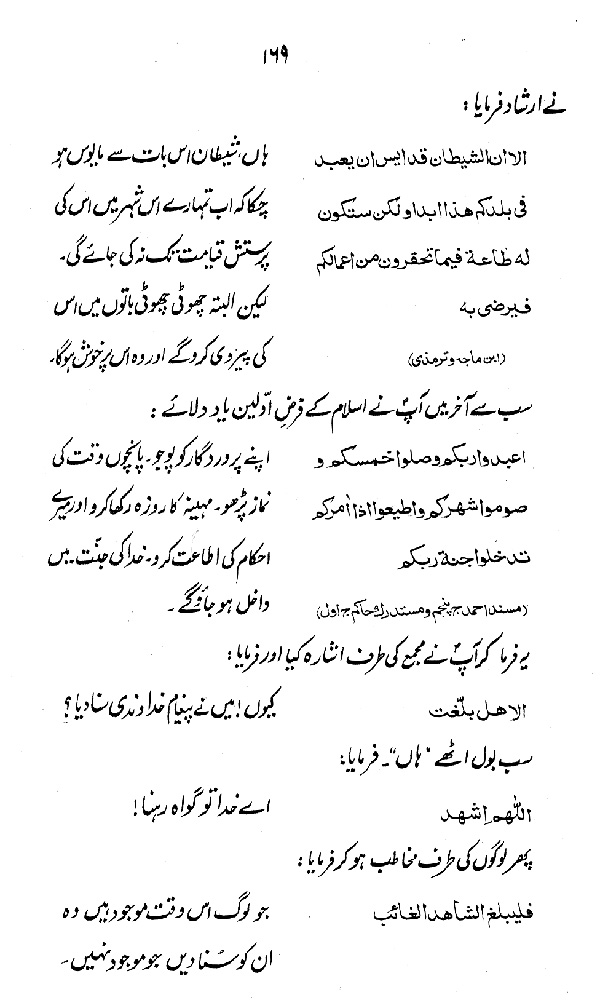 ۱۶۹
نے ارشاد فرمایا :
الا ان الشیطان قد ایس ان یعبد ہاں شیطان اس بات سے مایوس ہو
فی بلدکم ھذا ابدا ولکن ستکون چکا کہ اب تمہارے اس شہر میں اس کی
لہ طاعۃ فیما تحقرون من اعمالکم پرستش قیامت تک نہ کی جائے گی۔
فیرضی بہ لیکن البتہ چھوٹی چھوٹی باتوں میں اس
(ابن ماجہ و ترمذی) کی پیروی کرو گے اور وہ اس پر خوش ہوگا۔
سب سے آخر میں آپؐ نے اسلام کے فرض اوّلین یاد دلائے :
اعبدوا ربکم وصلوا خمسکم و اپنے پروردگار کو پوجو۔ پانچوں وقت کی
صوموا شھرکم واطیعوا اذا امرکم نماز پڑھو۔ مہینہ کا روزہ رکھا کرو اور میرے
تدخلوا جنۃ ربکم احکام کی اطاعت کرو۔ خدا کی جنّت میں
(مسند احمد ج پنجم و مستدرک حاکم ج اول) داخل ہو جاؤ گے۔
یہ فرما کر آپؐ نے مجمع کی طرف اشارہ کیا اور فرمایا :
الا ھل بلّغت کیوں! میں نے پیغام خداوندی سنا دیا؟
سب بول اٹھے "ہاں"۔ فرمایا :
اللّٰھم اشھد اے خدا تو گواہ رہنا!
پھر لوگوں کی طرف مخاطب ہو کر فرمایا :
فلیبلغ الشاھد الغائب جو لوگ اس وقت موجود ہیں وہ
ان کو سُنا دیں جو موجود نہیں۔